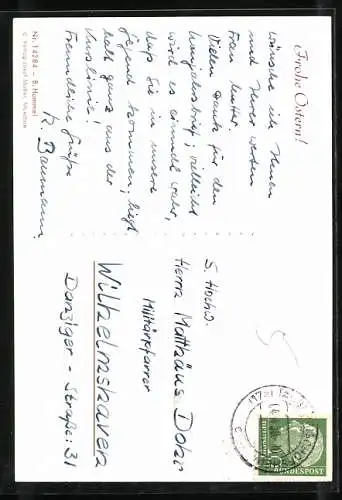 Frohe Ostern!
wünsche ich Ihnen
und Ihrer werten
Frau Mutter.
Vielen Dank für den
Neujahrsbrief; vielleicht
wird es einmal wahr,
daß Sie in unsere
Gegend kommen; liegt
halt ganz aus der
Kurslinie!
Freundliche Grüße
K. Baumann.
Nr. 14284 – B. Hummel
© Verlag Josef Müller, München
S. Hochw.
Herrn Matthäus Dolzer
Militärpfarrer
Wilhelmshaven
Danziger-Straße: 31
10
BUNDESPOST